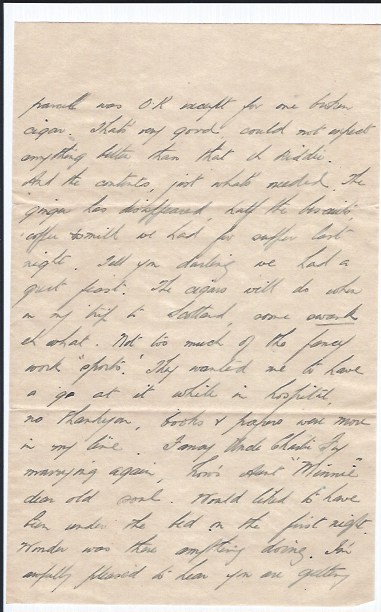 parcel was O.K. except for one broken
cigar. That's very good. could not expect
anything better than that eh kiddie.
And the contents, just what's needed. The
ginger has disappeared, half the biscuits,
coffee & milk we had for supper last
night. Tell you darling we had a
great feast. The cigars will do when
on my trip to Scotland, some swank
eh what. Not too much of the fancy
work "sports". They wanted me to have
a go at it while in hospital,
no thankyou, books & papers were more
in my line. Fancy Uncle Charlie
marrying again, how's Aunt "Minnie"
dear old soul. Would liked to have
been under the bed on the first night.
Wonder was there anything doing. I'm
awfully pleased to hear you are getting